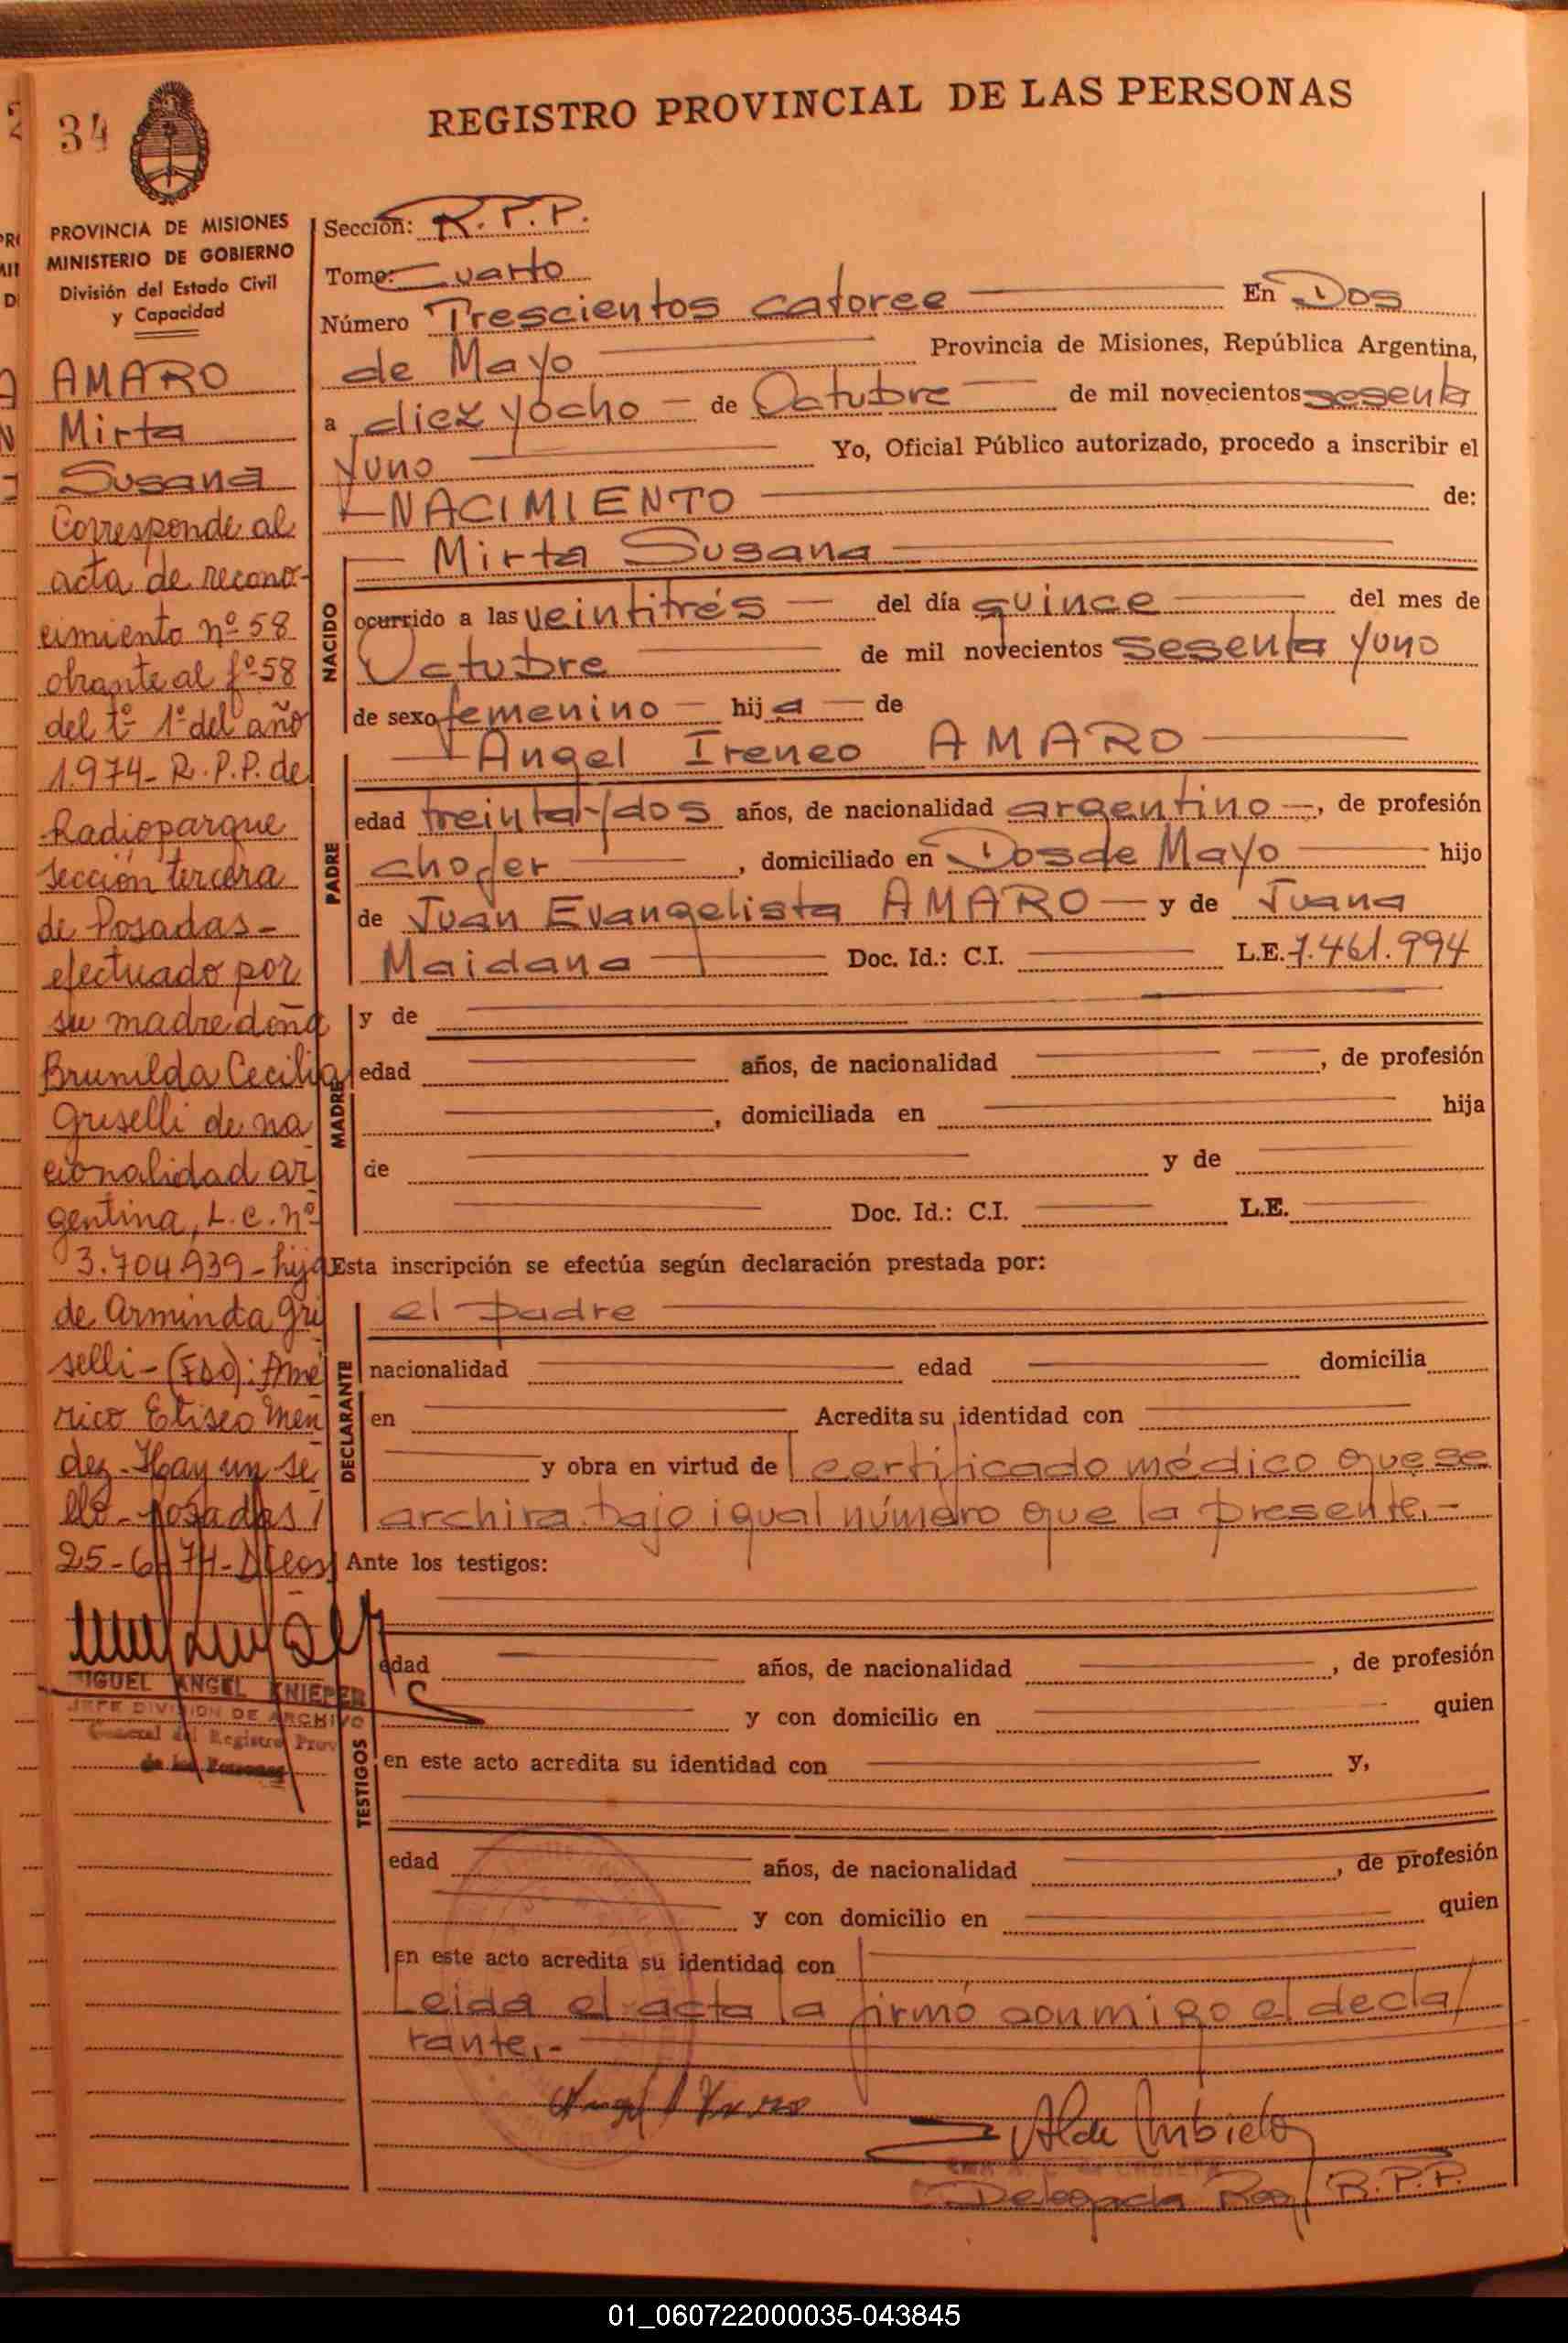 34
REGISTRO PROVINCIAL DE LAS PERSONAS
PROVINCIA DE MISIONES
MINISTERIO DE GOBIERNO
División del Estado Civil
y Capacidad
AMARO
Mirta
Susana
Corresponde al
acta de recono-
cimiento nº 58
obrante al fº 58
del tº 1º del año
1.974- R.P.P. de
Radioparque
sección tercera
de Posadas-
efectuado por
su madre doña
Brunilda Cecilia
Griselli de na
cionalidad ar
gentina, L.C. nº
3.704.939- hija
de Arminda Gri
selli- (FDO): Amé
rico Eliseo Men
dez- Hay un se
llo- posadas/
25-6-74-
MIGUEL ANGEL KNIEPER
JEFE DIVISION DE ARCHIVO
General del Registro Prov
de las Personas
Sección: R.P.P.
Tomo: Cuarto
Número Trescientos catorce En Dos
de Mayo Provincia de Misiones, República Argentina,
a diez y ocho de Octubre de mil novecientos sesenta
y uno Yo, Oficial Público autorizado, procedo a inscribir el
NACIMIENTO de:
NACIDO
Mirta Susana
ocurrido a las veintitrés del día quince del mes de
Octubre de mil novecientos sesenta y uno
de sexo femenino hija de
PADRE
Angel Ireneo AMARO
edad treinta y dos años, de nacionalidad argentino, de profesión
chofer, domiciliado en Dos de Mayo hijo
de Juan Evangelista AMARO y de Juana
Maidana Doc. Id.: C.I. L.E. 7.461.994
MADRE
y de
edad años, de nacionalidad , de profesión
, domiciliada en hija
de y de
Doc. Id.: C.I. L.E.
Esta inscripción se efectúa según declaración prestada por:
DECLARANTE
el padre
nacionalidad edad domicilia
en Acredita su identidad con
y obra en virtud de certificado médico que se
archiva bajo igual número que la presente.-
Ante los testigos:
TESTIGOS
edad años, de nacionalidad , de profesión
y con domicilio en quien
en este acto acredita su identidad con y,
edad años, de nacionalidad , de profesión
y con domicilio en quien
en este acto acredita su identidad con
Leida el acta la firmó conmigo el decla/
rante.-
Delegada R.P.P.
01_060722000035-043845